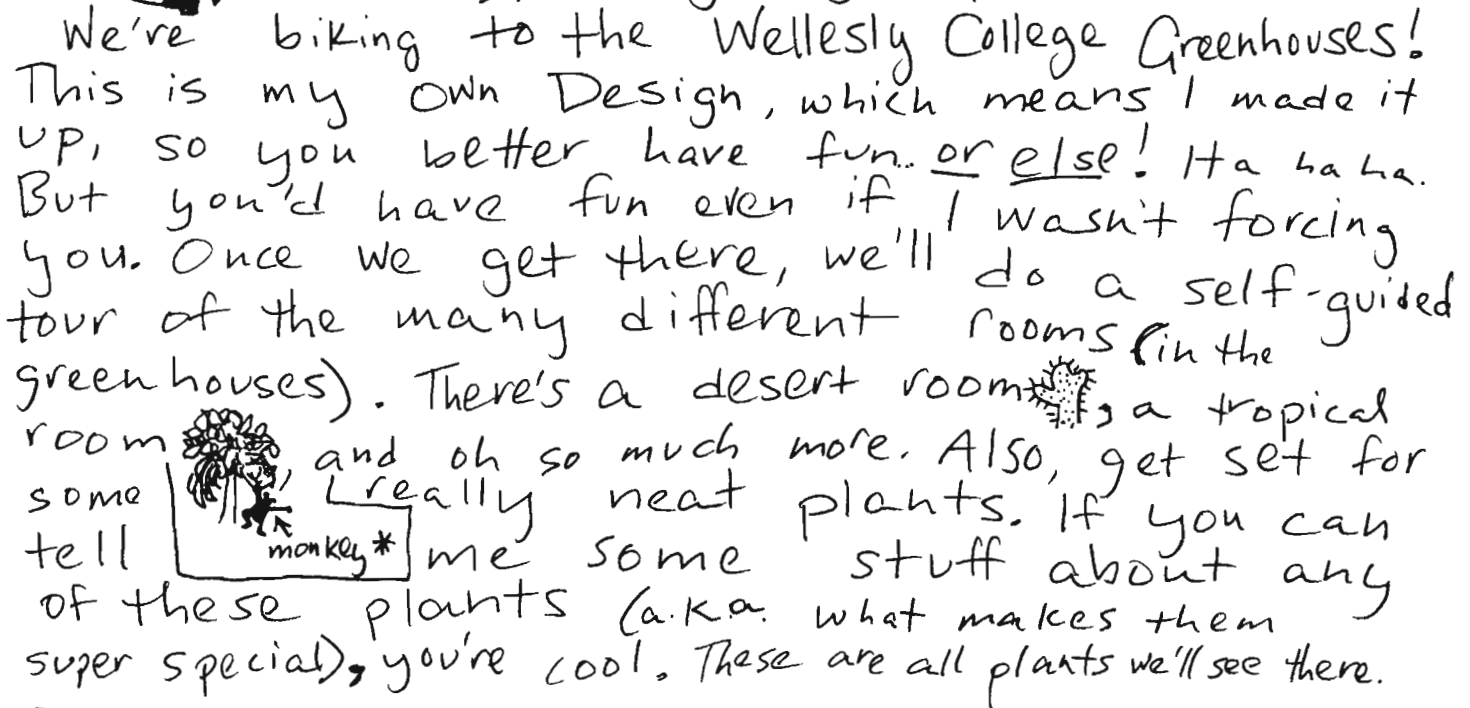 We're biking to the Wellesly College Greenhouses!
This is my own Design, which means I made it
up, so you better have fun.. or else! Ha ha ha.
But you'd have fun even if I wasn't forcing
you. Once we get there, we'll do a self-guided
tour of the many different rooms (in the
greenhouses). There's a desert room, a tropical
room, and oh so much more. Also, get set for
some really neat plants. If you can
monkey*
tell me some stuff about any
of these plants (a.k.a. what makes them
super special), you're cool. These are all plants we'll see there.